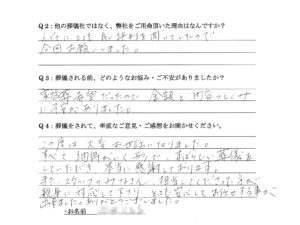 Q2：他の葬儀社ではなく、弊社をご用命頂いた理由はなんですか？
良い評判を聞いていたので
今回お願いしました。
Q3：葬儀される前、どのようなお悩み・ご不安がありましたか？
家族葬希望だったので 金額と内容のしくみ
に不安がありました。
Q4：葬儀をされて、率直なご意見・ご感想をお聞かせください。
この度は 大変お世話になりました。
すべて 納得がいく形で、すばらしい葬儀を
していただき 本当に感謝しております。
また スタッフのみなさん、担当してくださった方が
親身に対応して下さり とても安心してお任せする事が
出来ました。ありがとうございました。
・お名前